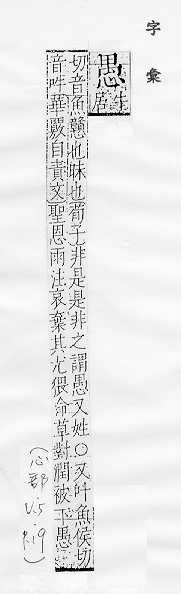 字彙
愚
牛居
切音魚戇也昧也荀子非是是非之謂愚又姓○又叶魚侯切
音吽華覈自責文聖恩雨注哀棄其尤猥命草對潤被下愚
(心部
V.5
P.19)